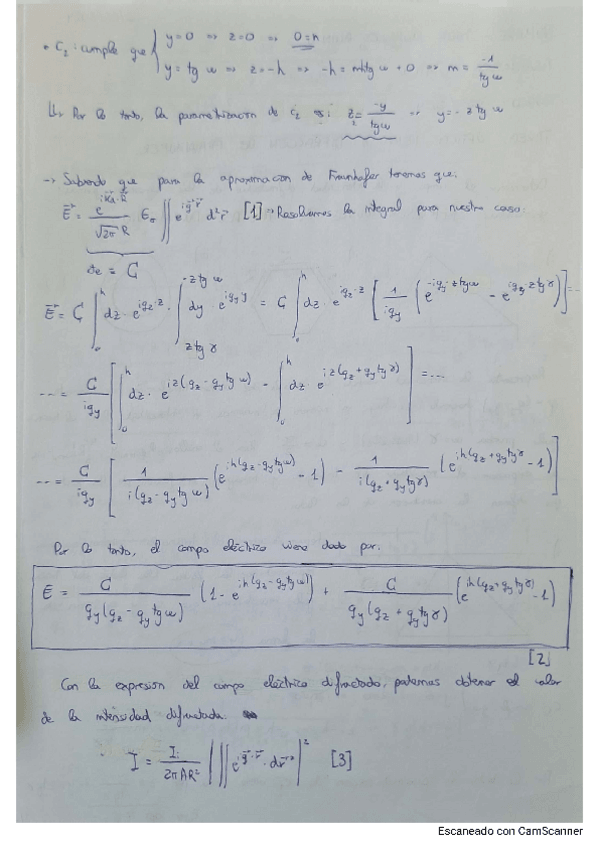 • C₂: cumple que { y=0 => z=0 => 0=n
y = tg w => z=-h => -h = m·tg w + 0 => m = -1/tg w
↳ Por lo tanto, la parametrización de c₂ es: z₂ = -y/tg w y = -z tg w
-> Sabiendo que para la aproximación de Fraunhofer tenemos que:
E⃗ = e^{i k_d R}/(√2π R) E_σ ∬ e^{i g⃗·r⃗} d²r [1] Resolvamos la integral para nuestro caso:
cte = C
E⃗ = C ∫₀^h dz·e^{i g_z·z} · ∫_{z tg γ}^{-z tg w} dy e^{i g_y y} = C ∫₀^h dz e^{i g_z·z} [ 1/(i g_y) ( e^{-i g_y·z tg w} - e^{i g_y·z tg γ} ) ] = ...
... = C/(i g_y) [ ∫₀^h dz·e^{i z (g_z - g_y tg w)} - ∫₀^h dz·e^{i z (g_z + g_y tg γ)} ] = ...
... = C/(i g_y) [ 1/(i(g_z - g_y tg w)) (e^{i h (g_z - g_y tg w)} - 1) - 1/(i(g_z + g_y tg γ)) (e^{i h (g_z + g_y tg γ)} - 1) ]
Por lo tanto, el campo eléctrico viene dado por:
E⃗ = C/(g_y (g_z - g_y tg w)) (1 - e^{i h (g_z - g_y tg w)}) + C/(g_y (g_z + g_y tg γ)) (e^{i h (g_z + g_y tg γ)} - 1)
[2]
Con la expresión del campo eléctrico difractado, podemos obtener el valor
de la intensidad difractada:
I = I_i/(2π A R²) | ∬ e^{i g⃗·r⃗}·dr⃗² |² [3]
Escaneado con CamScanner